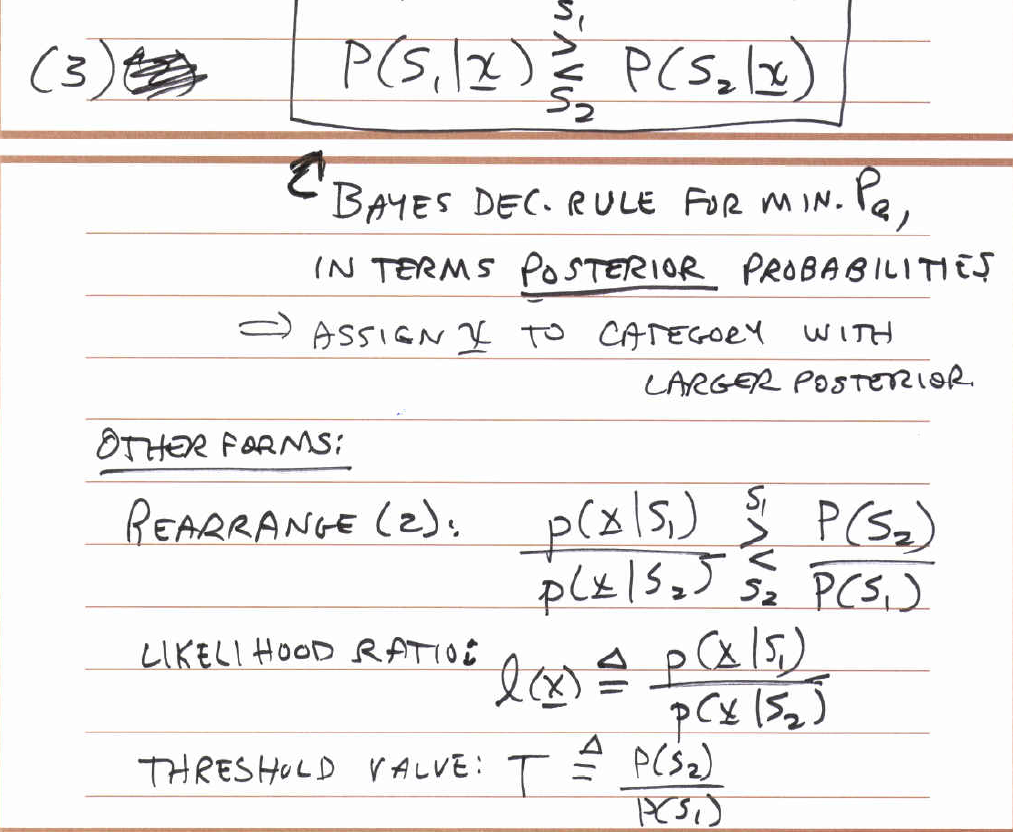 (3) P(S₁|x) S₁ > < S₂ P(S₂|x)
BAYES DEC. RULE FOR MIN. Pe,
IN TERMS POSTERIOR PROBABILITIES
⇒ ASSIGN x TO CATEGORY WITH
LARGER POSTERIOR.
OTHER FORMS:
REARRANGE (2): p(x|S₁) / p(x|S₂) S₁ > < S₂ P(S₂) / P(S₁)
LIKELIHOOD RATIO: l(x) ≜ p(x|S₁) / p(x|S₂)
THRESHOLD VALVE: T ≜ P(S₂) / P(S₁)